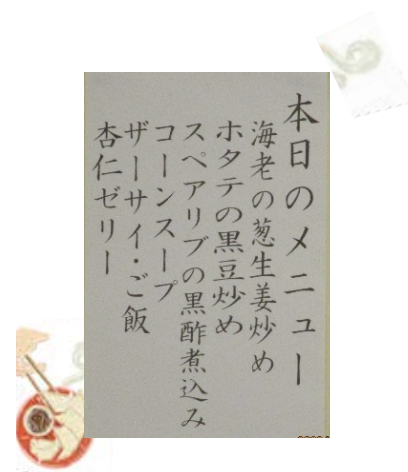 本日のメニュー
海老の葱生姜炒め
ホタテの黒豆炒め
スペアリブの黒酢煮込み
コーンスープ
ザーサイ・ご飯
杏仁ゼリー